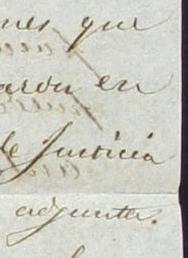 nes que
aron en
de Justicia
adjunta.